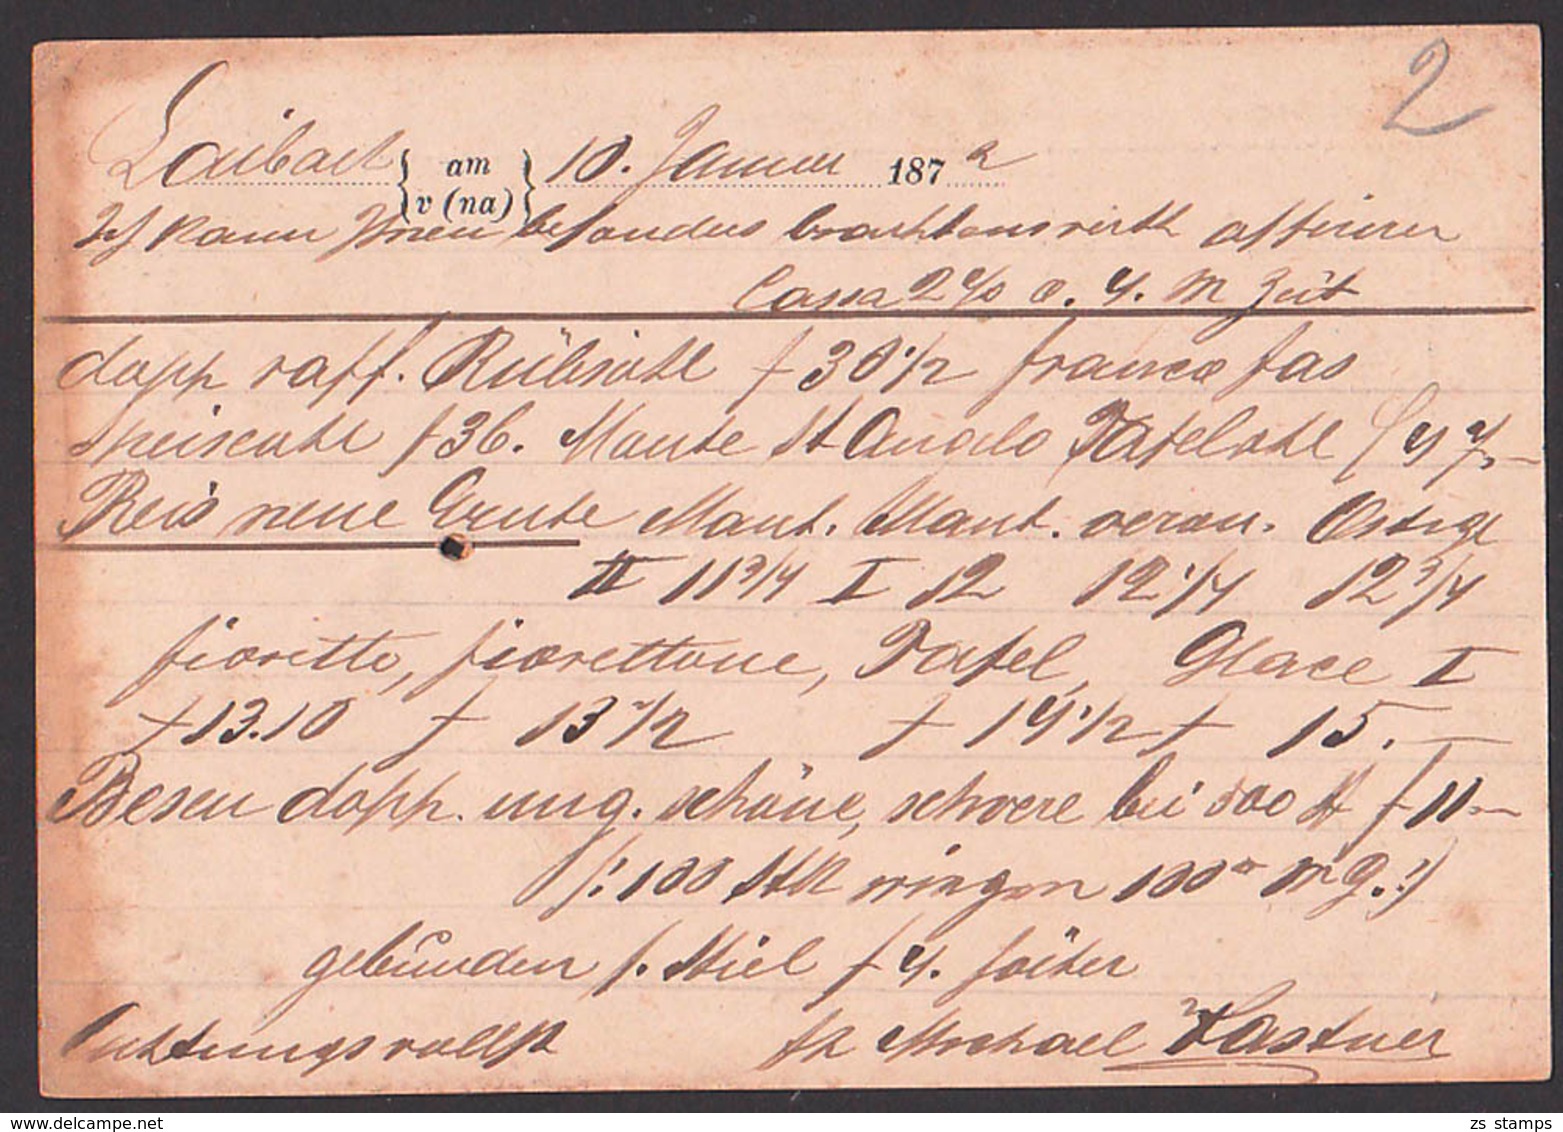 2
Laibach { am v (na) } 10. Januar 1872
Ich kann Ihnen besonders
Cassa 2% o. 4. M Zeit
dopp raff. Rübsöhl f 30 1/2 franco fas
Speiseöhl f 36. Monte St Angelo Tafelöhl f 47.—
Reis neue Ernte Mant. Mant. veron. Ostige
II 11 3/4 I 12 12 1/4 12 3/4
fioretto, fiorettone, Tafel, Glace I
f 13.10 f 13 1/2 f 14 1/2 f 15.—
Besen dopp. ung. schöne, schwere bei 500 f 11—
(:100 Stk 100 :)
gebunden f. Stiel f 4.
Achtungsvollst Michael Kastner
zs stamps